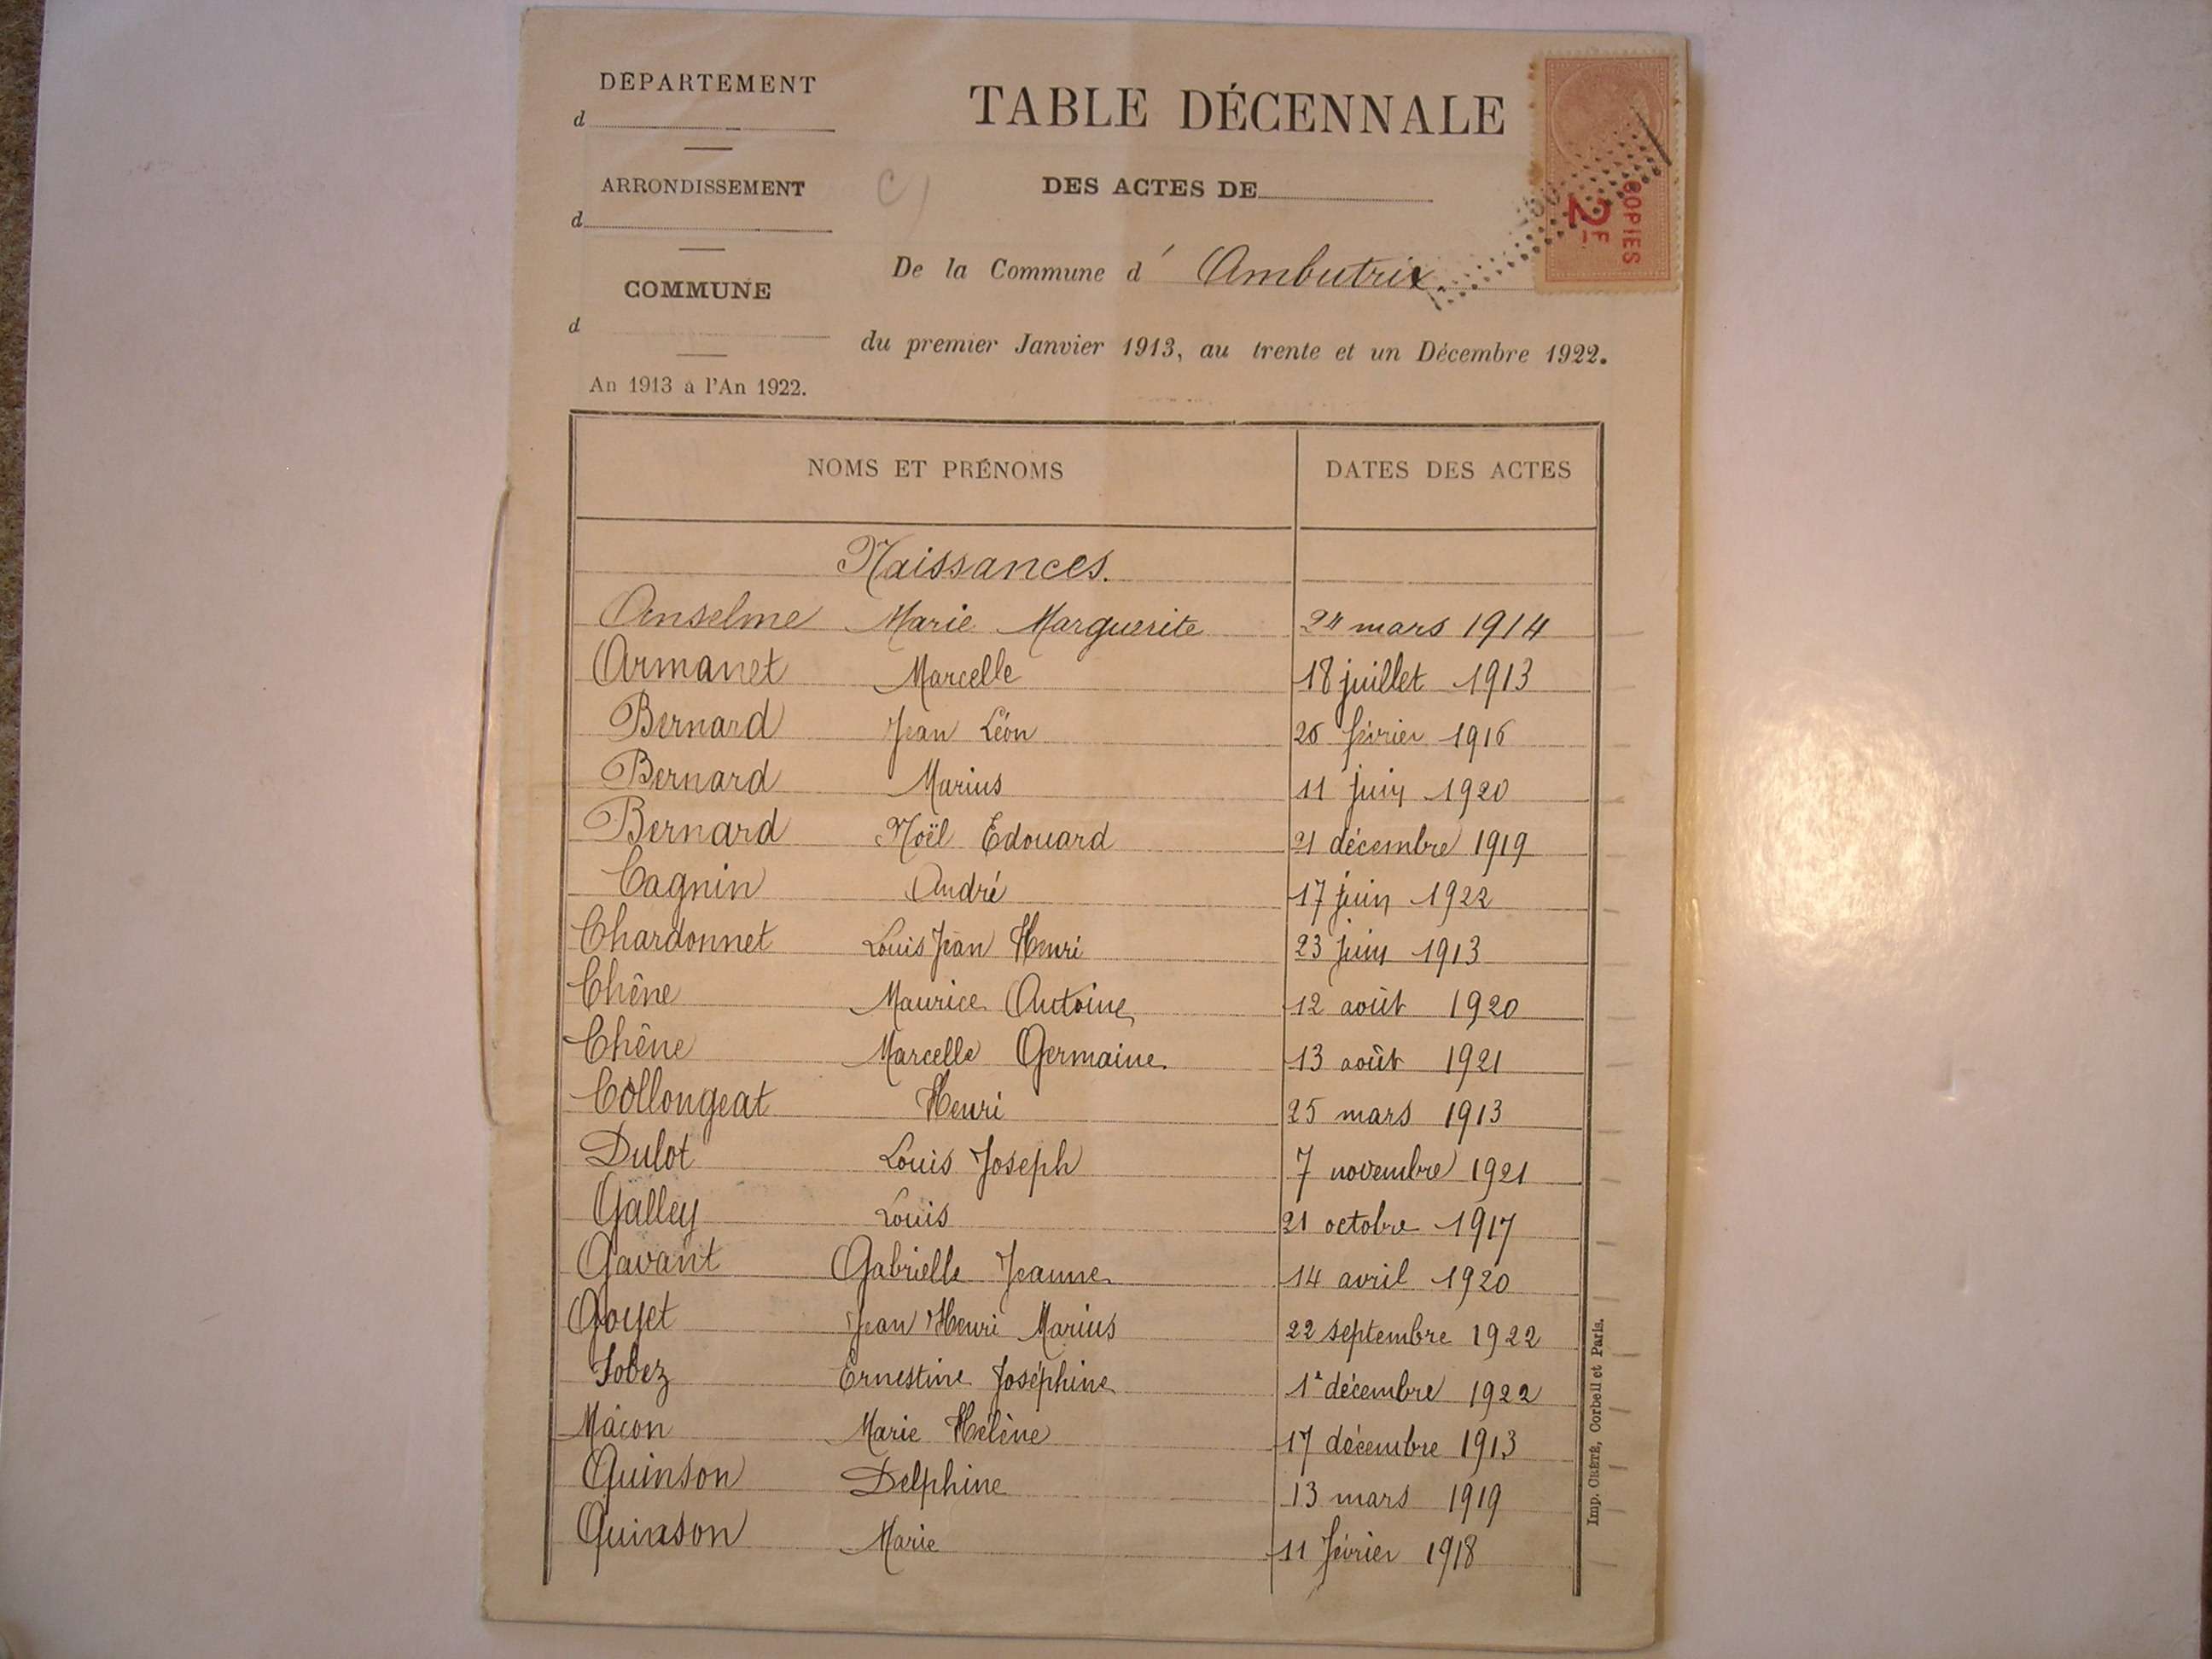 DÉPARTEMENT
d
ARRONDISSEMENT
d
COMMUNE
d
An 1913 à l'An 1922.
TABLE DÉCENNALE
DES ACTES DE
De la Commune d' Ambutrix.
du premier Janvier 1913, au trente et un Décembre 1922.
COPIES
2F
NOMS ET PRÉNOMS DATES DES ACTES
Naissances.
Anselme Marie Marguerite 24 mars 1914
Armanet Marcelle 18 juillet 1913
Bernard Jean Léon 26 février 1916
Bernard Marius 11 juin 1920
Bernard Noël Edouard 21 décembre 1919
Cagnin André 17 juin 1922
Chardonnet Louis Jean Henri 23 juin 1913
Chêne Maurice Antoine 12 août 1920
Chêne Marcelle Germaine 13 août 1921
Collongeat Henri 25 mars 1913
Dulot Louis Joseph 7 novembre 1921
Galley Louis 21 octobre 1917
Gavant Gabrielle Jeanne 14 avril 1920
Goyet Jean Henri Marius 22 septembre 1922
Jobez Ernestine Joséphine 1r décembre 1922
Mâcon Marie Hélène 17 décembre 1913
Quinson Delphine 13 mars 1919
Quinson Marie 11 février 1918
Imp. CRÉTÉ, Corbeil et Paris.